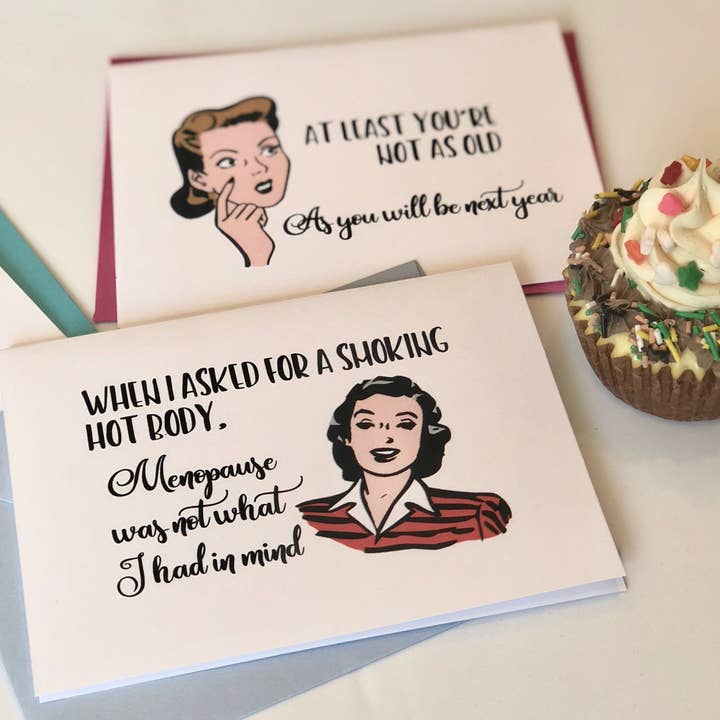 AT LEAST YOU'RE
NOT AS OLD
As you will be next year
WHEN I ASKED FOR A SMOKING
HOT BODY,
Menopause
was not what
I had in mind